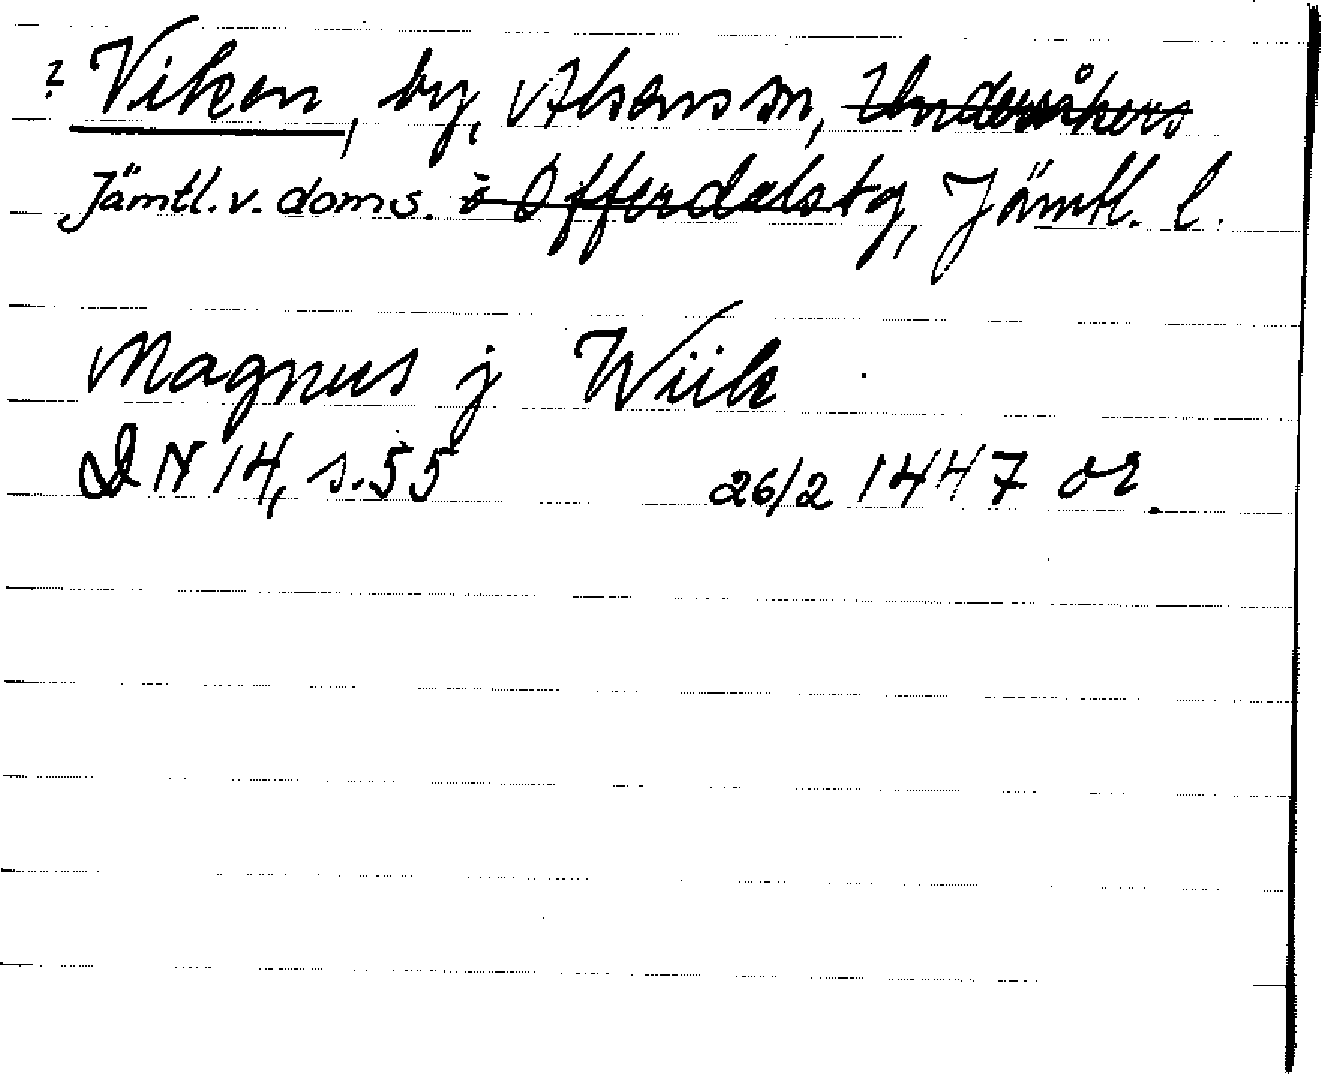 ? Viken, by, Alsens sn, Undersåkers
Jämtl. v. doms. o Offerdals tg, Jämtl. l.
Magnus j Wiik
DN 14, s. 55 26/2 1447 or.